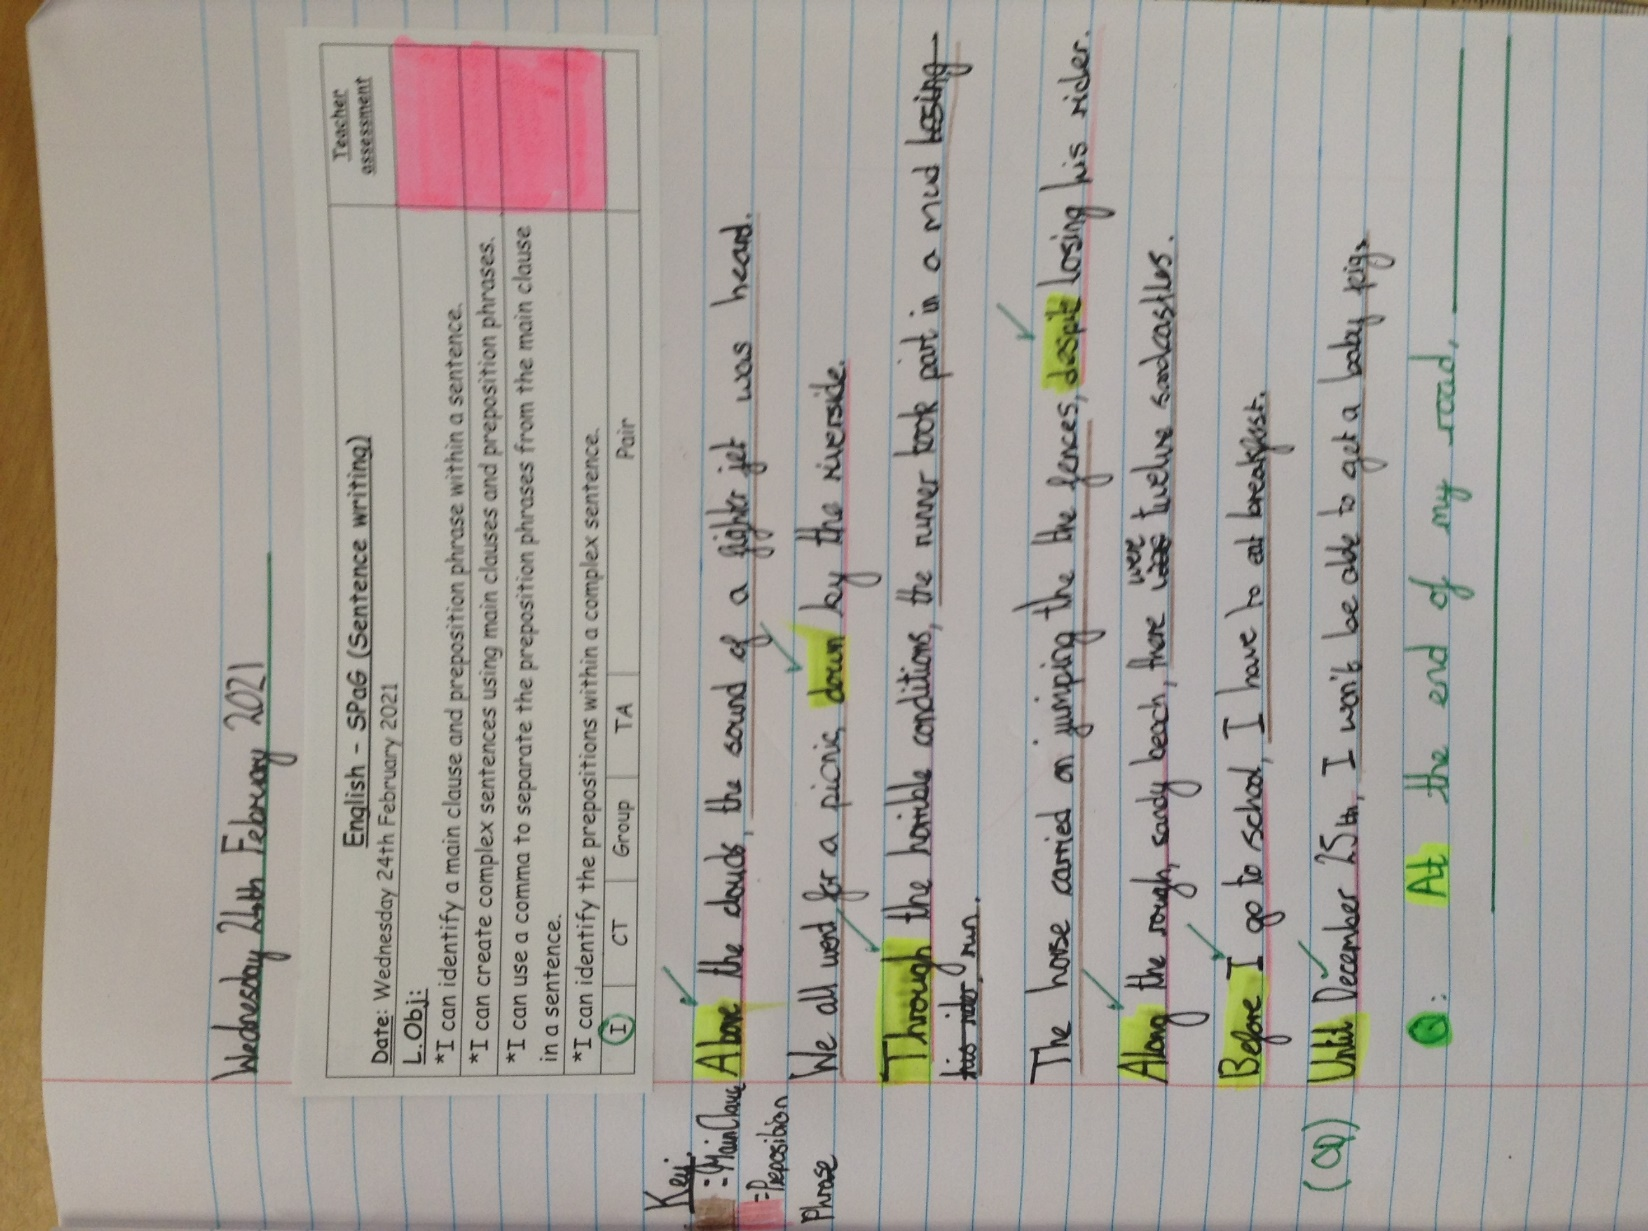 Wednesday 24th February 2021
English - SPaG (Sentence writing)
Teacher assessment
Date: Wednesday 24th February 2021
L.Obj:
*I can identify a main clause and preposition phrase within a sentence.
*I can create complex sentences using main clauses and preposition phrases.
*I can use a comma to separate the preposition phrases from the main clause
in a sentence.
*I can identify the prepositions within a complex sentence.
I CT Group TA Pair
Key.
=Main Clause
=Preposition
Phrase
Above the clouds, the sound of a fighter jet was heard.
We all went for a picnic, down by the riverside.
Through the horrible conditions, the runner took part in a mud losing
his rider run.
The horse carried on jumping the the fences, despite losing his rider.
Along the rough, sandy beach, there was were twelve sandcastles.
Before I go to school, I have to eat breakfast.
Until December 25th, I won't be able to get a baby pig.
Q: At the end of my road,